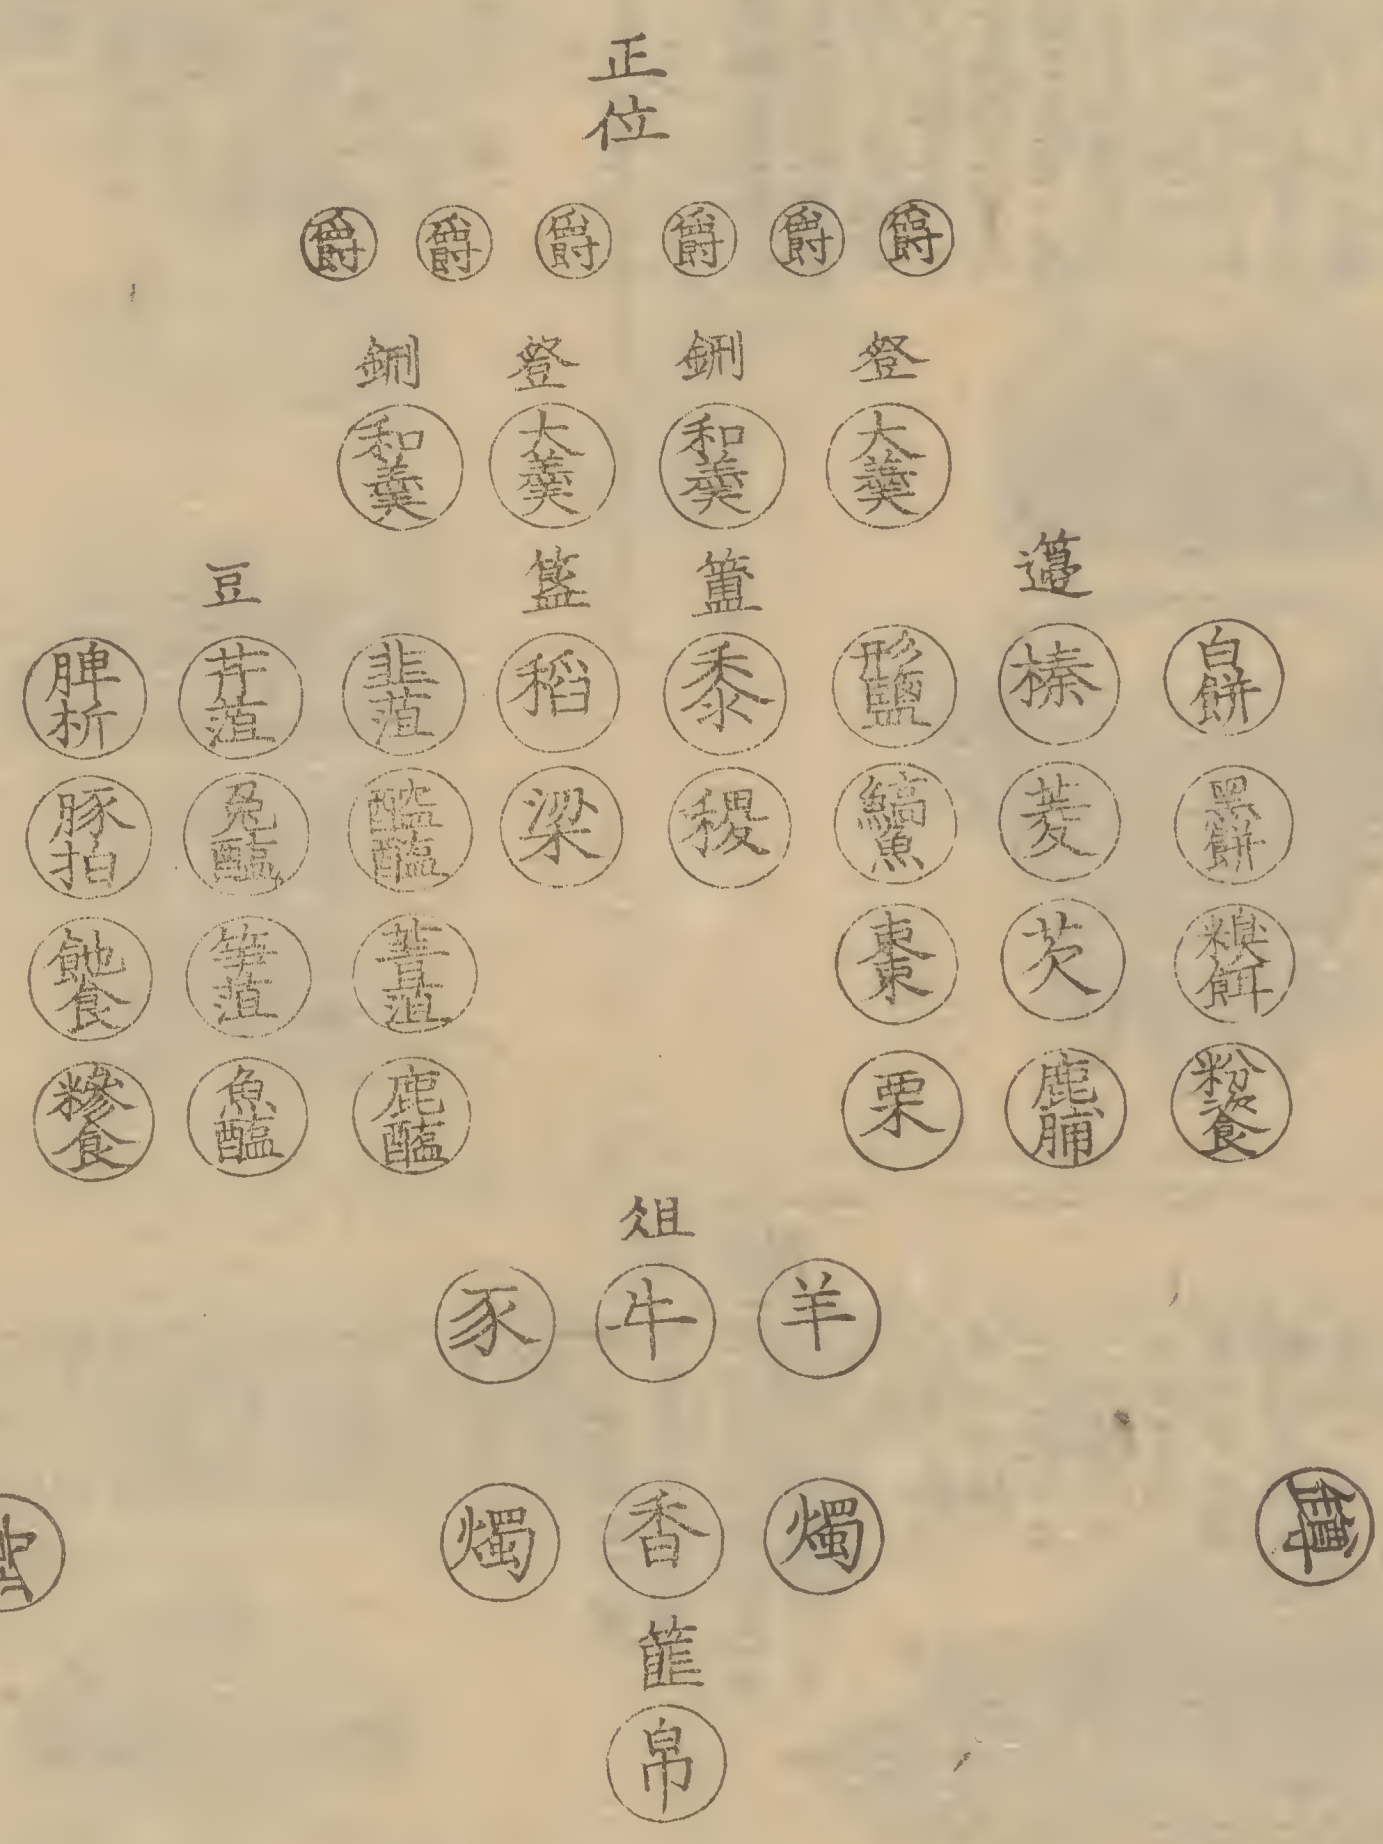 正位
爵 爵 爵 爵 爵 爵
鉶 登 鉶 登
和羹 大羹 和羹 大羹
豆 簋 簠 籩
脾析 芹菹 韭菹 稻 黍 形鹽 榛 白餅
豚拍 兔醢 醓醢 梁 稷 鰝魚 菱 黑餅
食 笋菹 菁菹 棗 芡 糗餌
糝食 魚醢 鹿醢 栗 鹿脯 粉餈
俎
豕 牛 羊
燭 香 燭
篚
帛